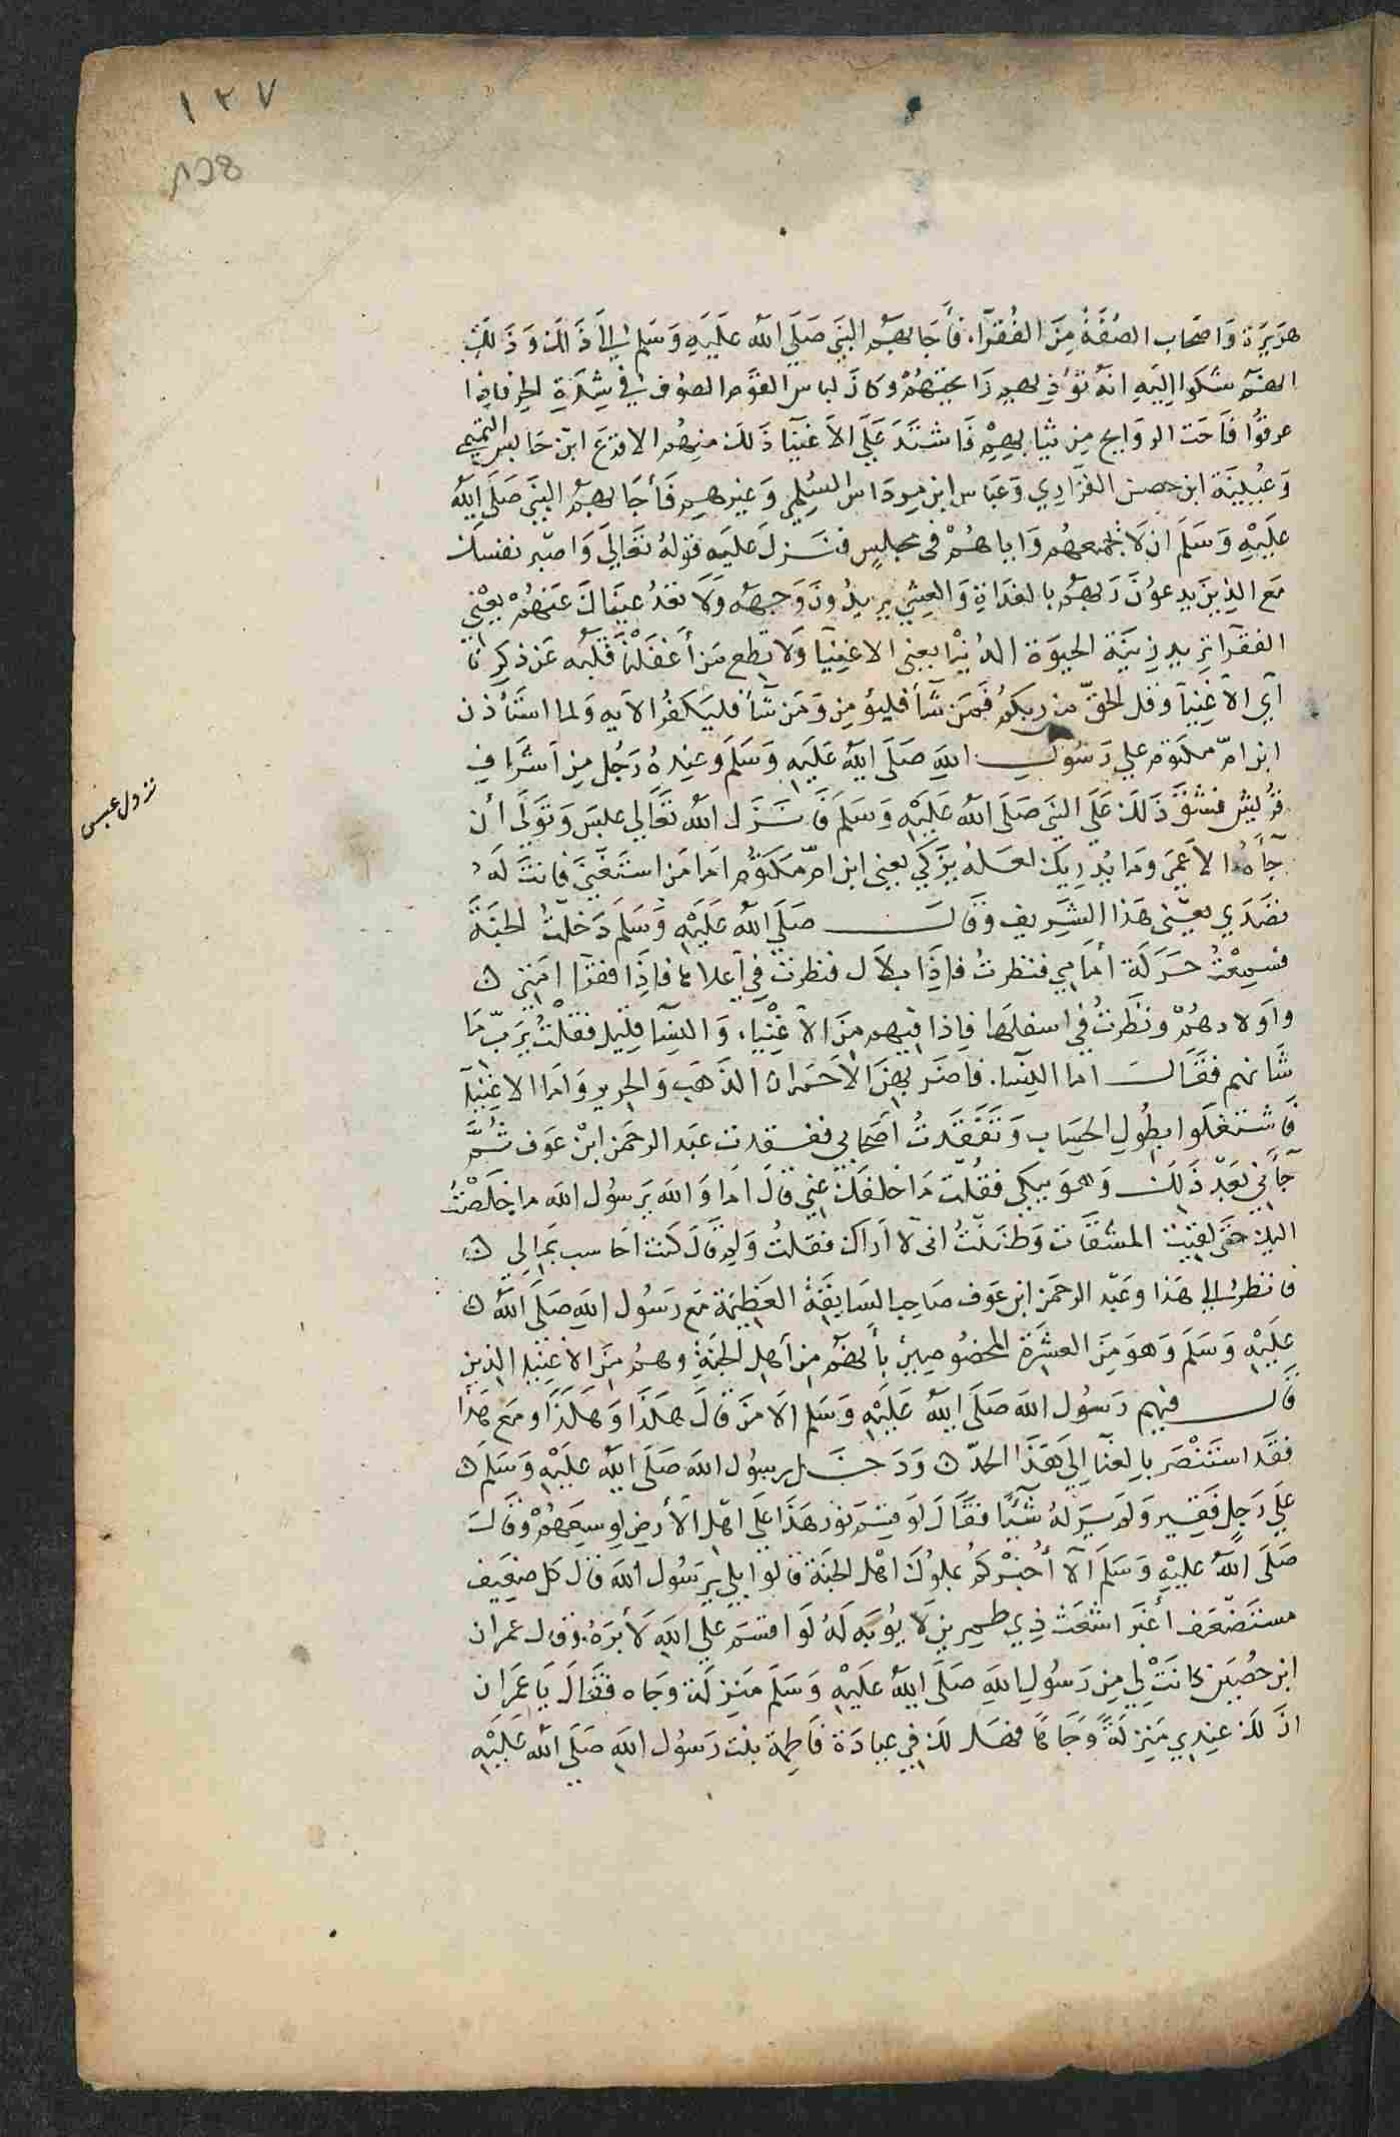 ١٢٧
هريرة وَاصْحَاب الصُفَّةُ مِنَ الفُقَرَآء فأَجَابهَمُ النَبى صَلّى اللهُ عَلَيهِ وَسَلم الى ذَلك وَذَلِكَ
انهم شكوا اِليَهِ انهُ تؤذيهم رَايحتهُمْ وكانَ لباس القوَم الصُوف فى شِدّةِ الحر فاذا
عرقوُا فَاحَت الروَايح مِن ثيابهِمْ فَاشتَدَ عَلَى الاَغنيَا ذَلك منهُم الاقرع ابن حَابس التميمى
وَعُيَينَة ابن حِصن الفزَارِي وَعَباس ابن مِردَاس السُلمي وَغيرهم فَأجَابهُم النبَى صَلّى اللهُ
عَلَيْهِ وَسَلَمَ ان لَا يجمَعهُم وَاياهُمْ فى مجلسٍ فنَزلَ عليَه قوْلهُ تعَالَى وَاصبْر نفسَك
مَع الذينَ يدعوُنَ رَبهَمُ بالغدَاةِ وَالعِشي يرِيدُونَ وَجههُ وَلَا تعَدُ عينَاكَ عَنهُمْ يعْنى
الفقرَآ تريد زينَة الحيوَة الدُنيْا يعنى الاغنيَآ وَلَا تطع مَن أَغفَلْنَا قَلْبَه عَن ذكرِنَا
اَى الاَغنِيآ وَقل الحقّ من ربكمُ فمَن شَآء فليُؤمِن وَمَن شَآء فليَكفُر الايه وَلما استَأذن
ابن امّ مكتوم على رَسُولِ اللهِ صَلّى اللهُ عَلَيهِ وَسَلَمَ وَعِندهُ رَجُل مِن اَشرَافِ
قرُيش فشقَّ ذَلكَ عَلَى النبَى صَلَّى اللهُ عَليَهِ وَسَلَمَ فَانزَل اللهُ تعَالى عبسَ وَتوَلَّى أن
جَآءهُ الاَعمَى وَمَا يُدرِيكَ لعَلهُ يزَّكي يعنى ابن امّ مكتوُم امَا مَن استَغنىَ فانتَ لهُ
تصَدَي يعْنى هَذا الشَرِيف وقَالَ صَلّى اللهُ عَليَهِ وَسَلَمَ دَخلتُ الجنَةَ
فسَمِعْتُ حَرَكَةً أمَامِي فنظرتُ فاذَا بلاَل فنظرتُ فِي أعلاهَا فاذَا فقرَآ امتى
وَاَولادهُمْ وَنظرتُ في اسفلهَا فاذا فيهِم مِنَ الاَغنْيَاء وَالنسَآ قلِيل فقلْتُ يَرَبّ مَا
شَانهم فقَالَ امَا النسَآ فاضَر بهِنَ الاَحمَرَان الذَهَب وَالحرير وَامَا الاغنِيَآ
فَاشتَغلَوا بطُولِ الحسَاب وَتفَقَّدتُ أصَحَابي ففقدت عبَد الرحمَن ابن عَوف ثُمَّ
جَآءني بَعْدَ ذَلكَ وَهوَ يبكي فقُلتُ مَا خلفَكَ عنِّي قالَ امَا وَالله يَرسُول الله مَا خلصْتُ
اليكَ حتَى لقِيتُ المشقَات وَظنَنتُ انى لَا اَرَاك فقلتُ وَلِمَ قالَ كنتُ احَاسب بمَالِي
فانظر الى هَذا وَعَبْد الرحمَن ابن عَوف صَاحِب السَابقَةِ العَظِيمَة مَع رَسُول الله صَلّى اللهُ
عَليَهِ وَسَلَمَ وَهوَ مِنَ العشَرَة المخصُوصِينَ بِأَنهَم مِن اَهل الجنَةِ وهُم مِنَ الاَغنِيَآ الذين
قَالَ فيهِم رَسُول الله صَلَّى اللهُ عَليَهِ وَسَلم الاَ مَن قالَ هَكذَا وَهَكذَا وَمَع هَذا
فقَد استَنضَر بالغنَا اِلَى هَذَا الحدّ وَدَخَل رسُول الله صَلَّى اللهُ عَليَهِ وَسَلمَ
عَلى رَجلٍ فَقِيرٍ وَلَم يرَ لهُ شَيئًا فقَالَ لَو قسِمَ نوُر هَذَا عَلى اهْل الأَرضِ لوسِعَهُمْ وقَالَ
صَلّى اللهُ عليَهِ وَسَلَمَ اَلاَ أُخبْركمُ بملوُكَ اهْل الجنَة قالوا بلى يَرَسُول الله قال كل ضعيف
مستضْعَف أغبَر اشعَث ذِي طمرين لَا يؤبَه لَهُ لَو اقسَم على الله لَأبرّهُ وقال عمرَان
ابن حُصَين كانَتْ لى مِن رَسُول اللهِ صَلّى اللهُ عَليَهِ وَسَلَمَ مَنزلة وجَاه فقَالَ يَا عِمرَان
انَّ لكَ عندِي مَنزلةً وَجَاهًا فهَل لكَ فى عيادَة فَاطِمة بنت رَسُول الله صَلّى اللهُ عَليْهِ
نزول عبس